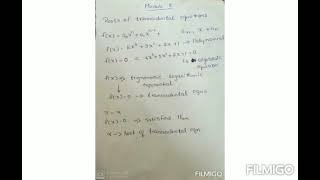 Module 2
Roots of transcendental equations
f(x) = a₀xⁿ + a₁xⁿ⁻¹ aₙ₋₁ x + aₙ
→ Polynomial
f(x) = 0
→ algebraic
equation
f(x) → trigonometric, logarithmic
exponential
f(x) = 0 → transcendental eqns
f(x) = 0 → satisfied then
→ root of transcendental eqn
FILMIGO
FILMIGO